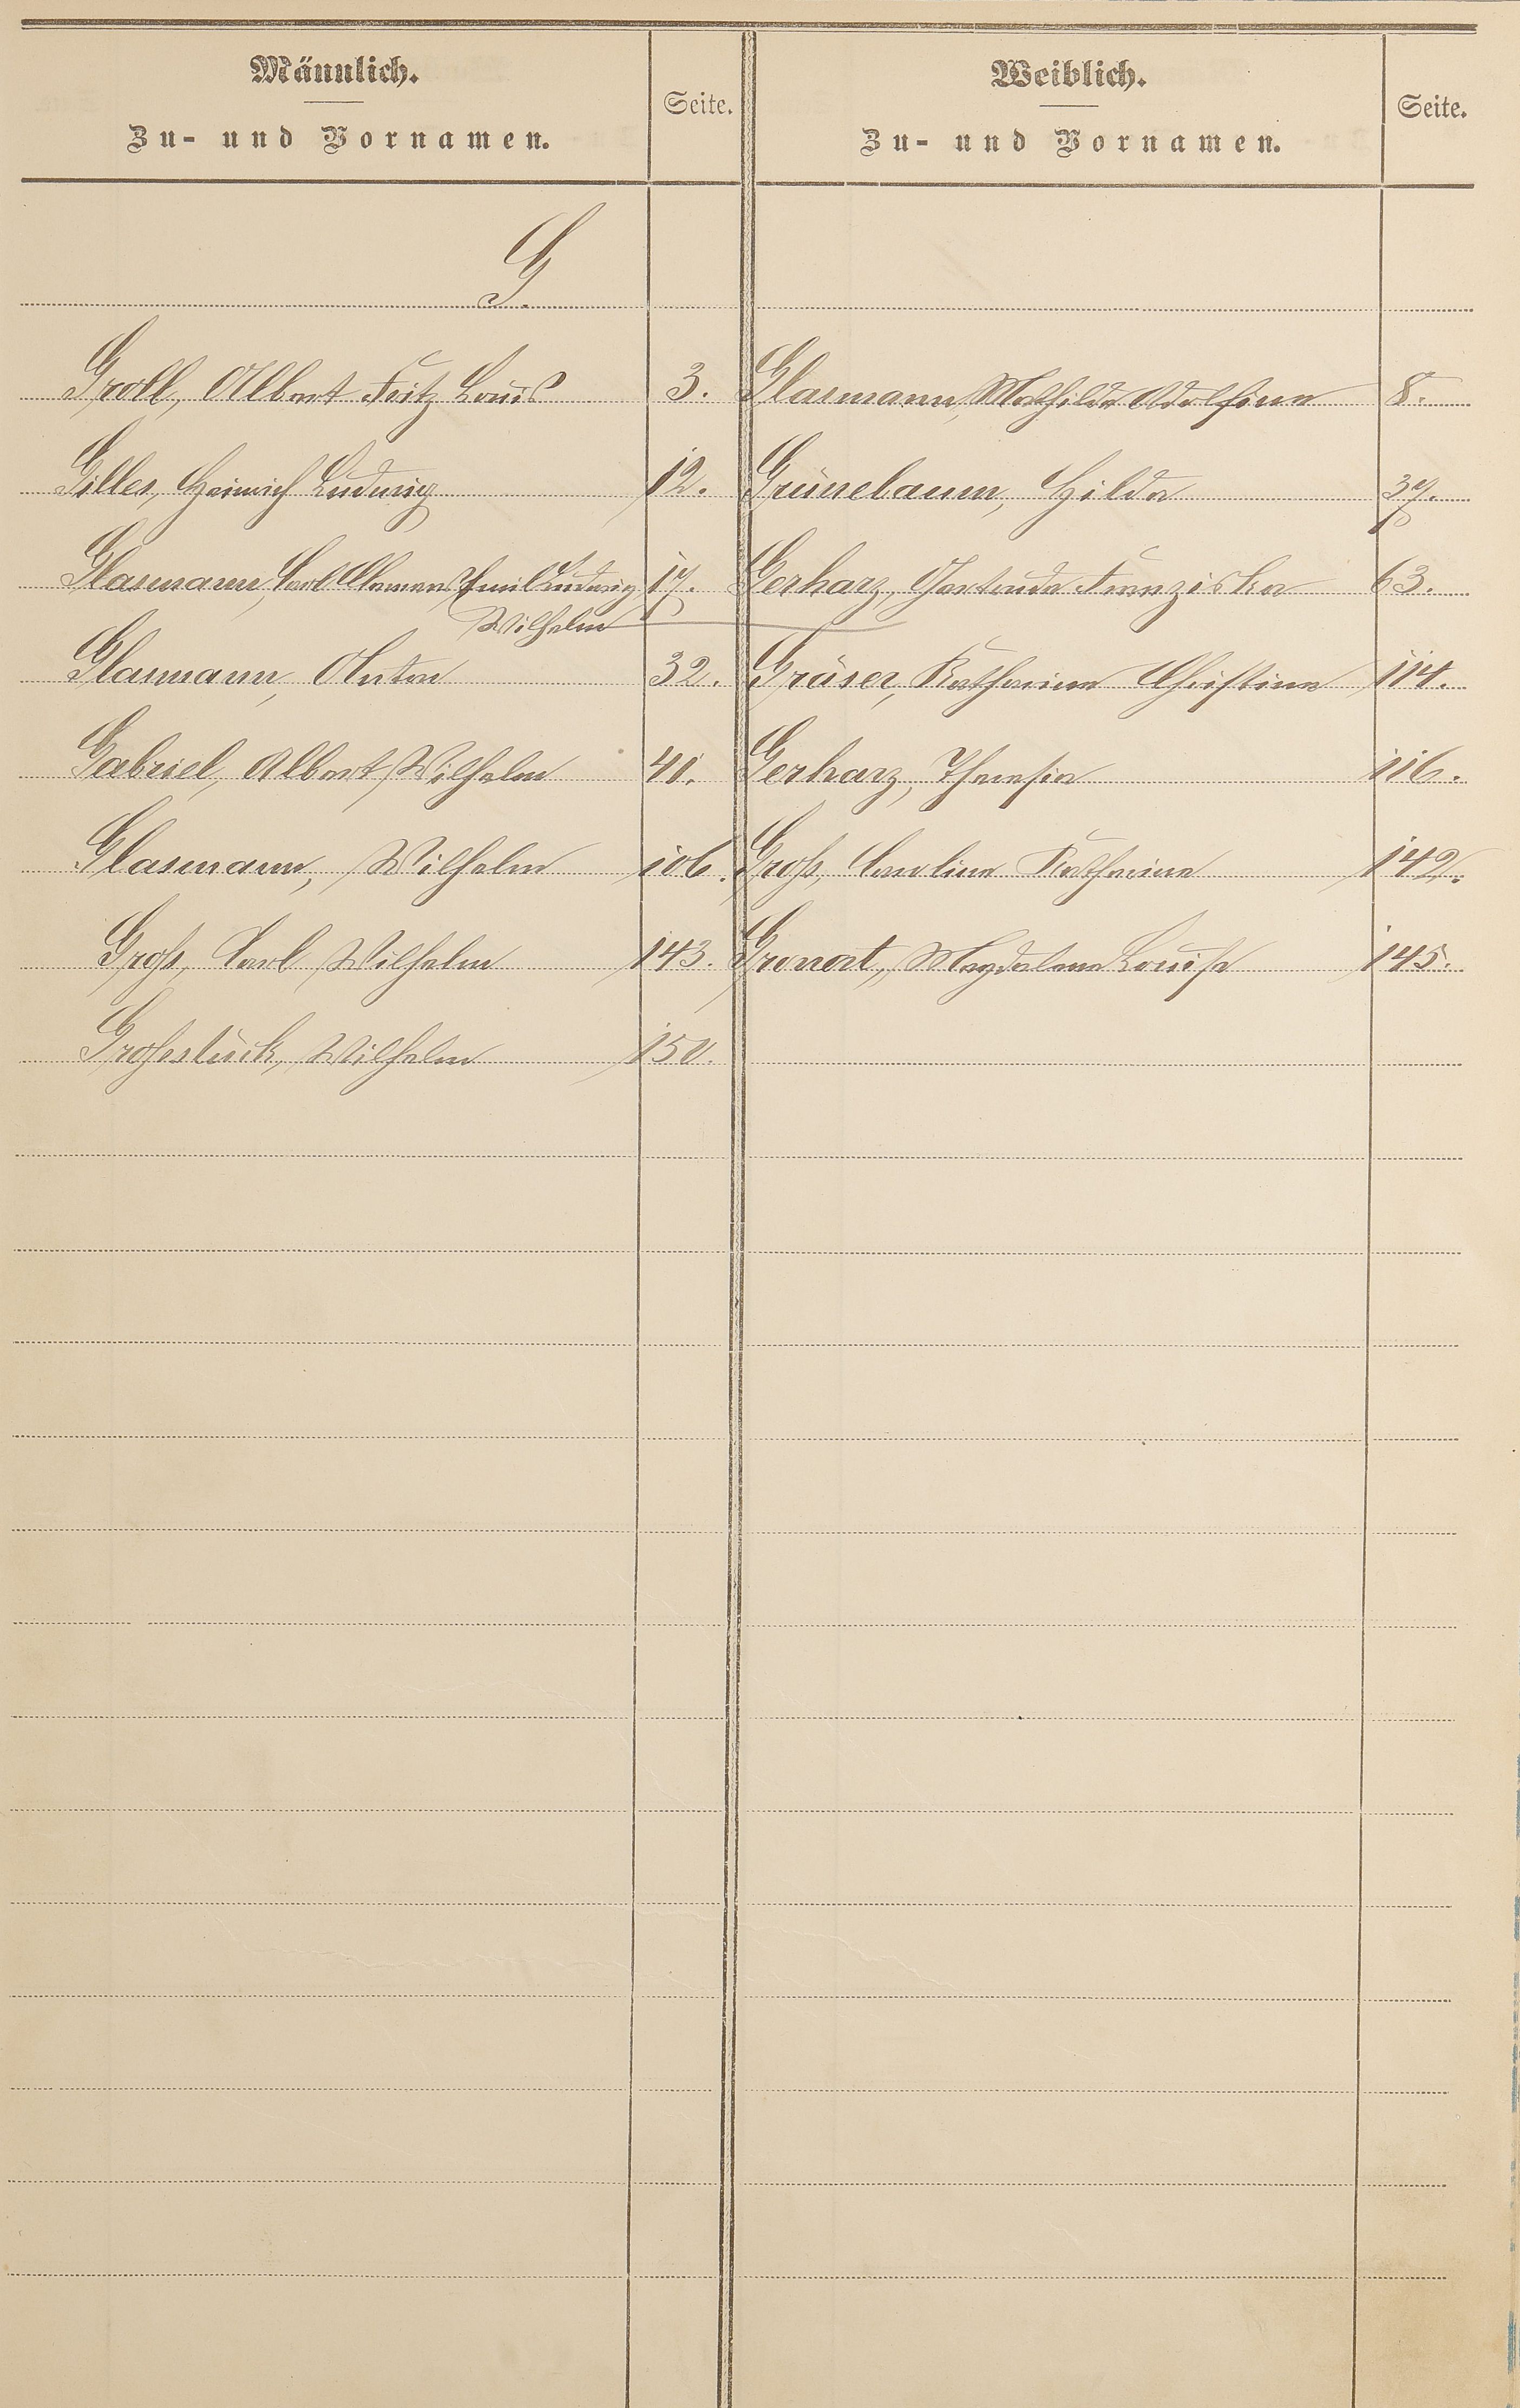 Männlich.
Zu- und Vornamen.
Seite.
Weiblich.
Zu- und Vornamen.
Seite.
G.
Groll, Albert Fritz Louis 3. Glasmann, Mathilde Adolfine 8.
Gilles, Heinrich Ludwig 12. Grünebaum, Hilda 37.
Glasmann, Carl Clemens Emil Ludwig 17. Gerharz, Gertrude Franziska 63.
Wilhelm
Glasmann, Anton 32. Gräser, Katharina Christina 114.
Gabriel, Albert Wilhelm 40. Gerharz, Theresia 116.
Glasmann, Wilhelm 106. Groß, Carolina Katharina 142.
Groß, Carl Wilhelm 143. Magdalena Louise 145.
Wilhelm 150.